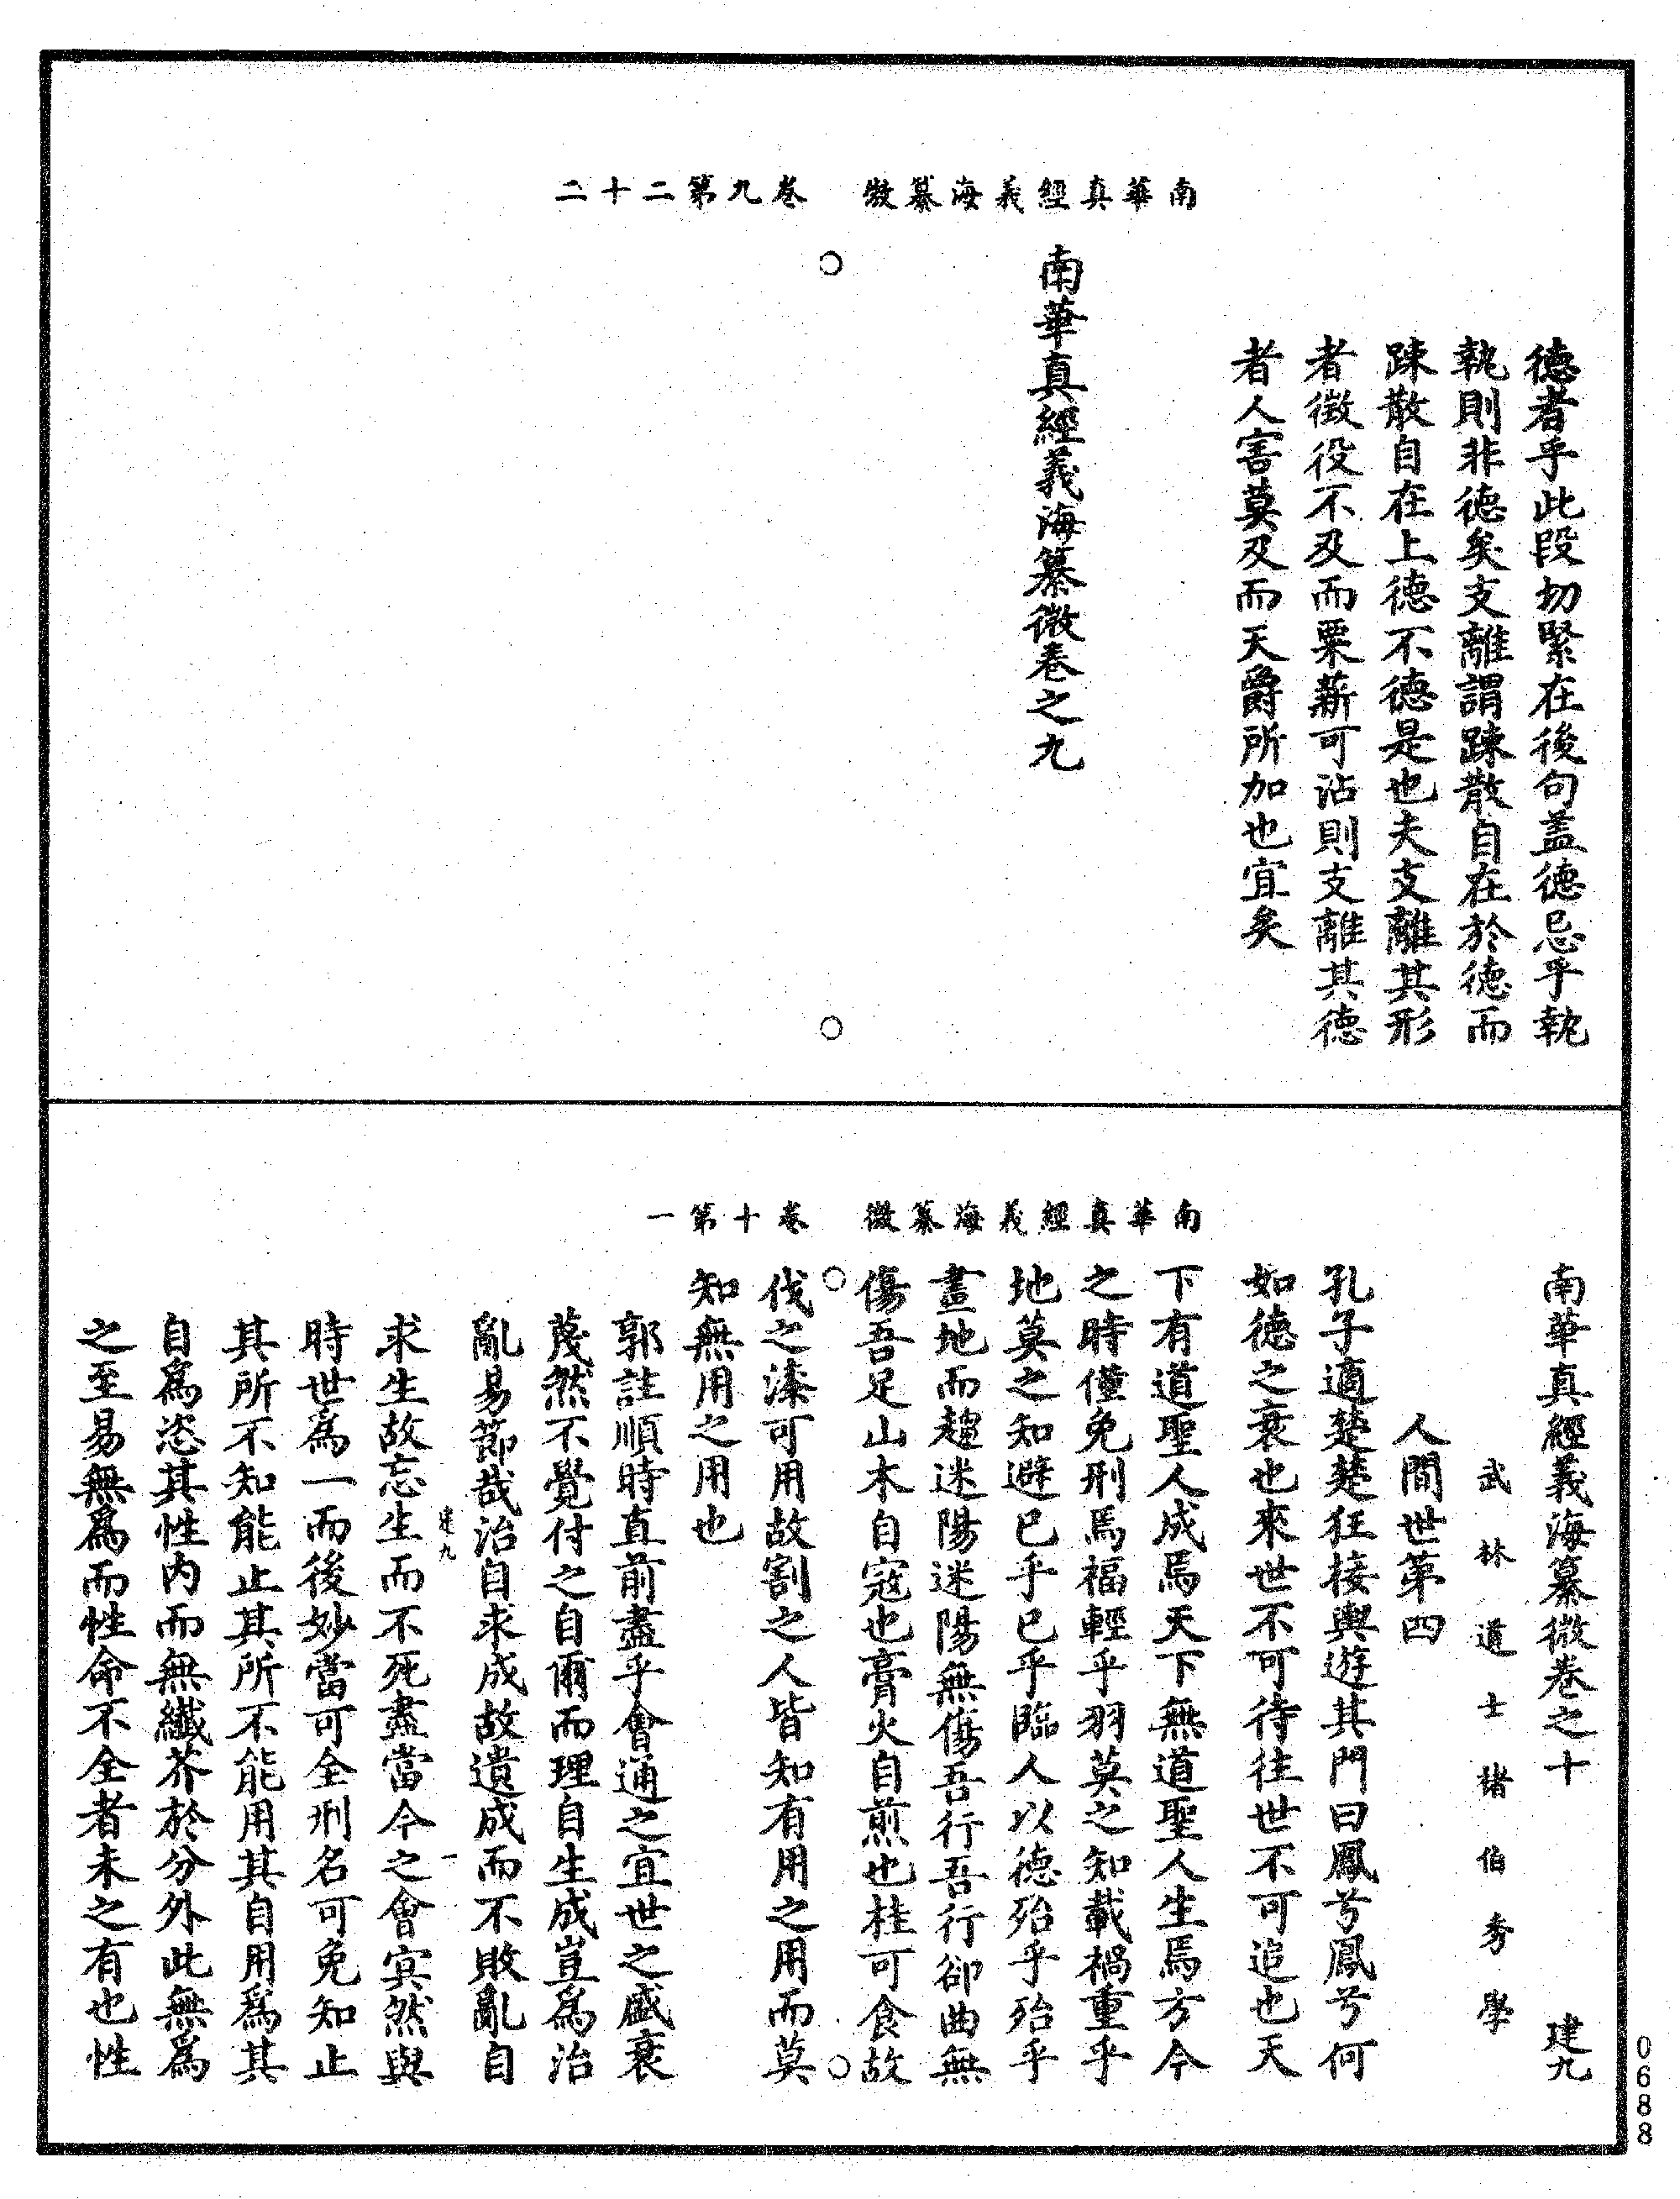 南華真經義海纂微　卷九第二十二
德者乎此段切緊在後句盖德忌乎執
執則非德矣支離謂踈散自在於德而
踈散自在上德不德是也夫支離其形
者徵役不及而粟薪可沾則支離其德
者人害莫及而天爵所加也宜矣
南華真經義海纂微卷之九
南華真經義海纂微　卷十第一
南華真經義海纂微卷之十　建九
武林道士褚伯秀學
人間世第四
孔子適楚楚狂接輿遊其門曰鳳兮鳳兮何
如德之衰也來世不可待往世不可追也天
下有道聖人成焉天下無道聖人生焉方今
之時僅免刑焉福輕乎羽莫之知載禍重乎
地莫之知避已乎已乎臨人以德殆乎殆乎
畫地而趨迷陽迷陽無傷吾行吾行卻曲無
傷吾足山木自寇也膏火自煎也桂可食故
伐之漆可用故割之人皆知有用之用而莫
知無用之用也
郭註順時直前盡乎會通之宜世之盛衰
蔑然不覺付之自爾而理自生成豈為治
亂易節哉治自求成故遺成而不敗亂自
建九　一
求生故忘生而不死盡當今之會㝠然與
時世為一而後妙當可全刑名可免知止
其所不知能止其所不能用其自用為其
自為恣其性內而無纖芥於分外此無為
之至易無為而性命不全者未之有也性
0688